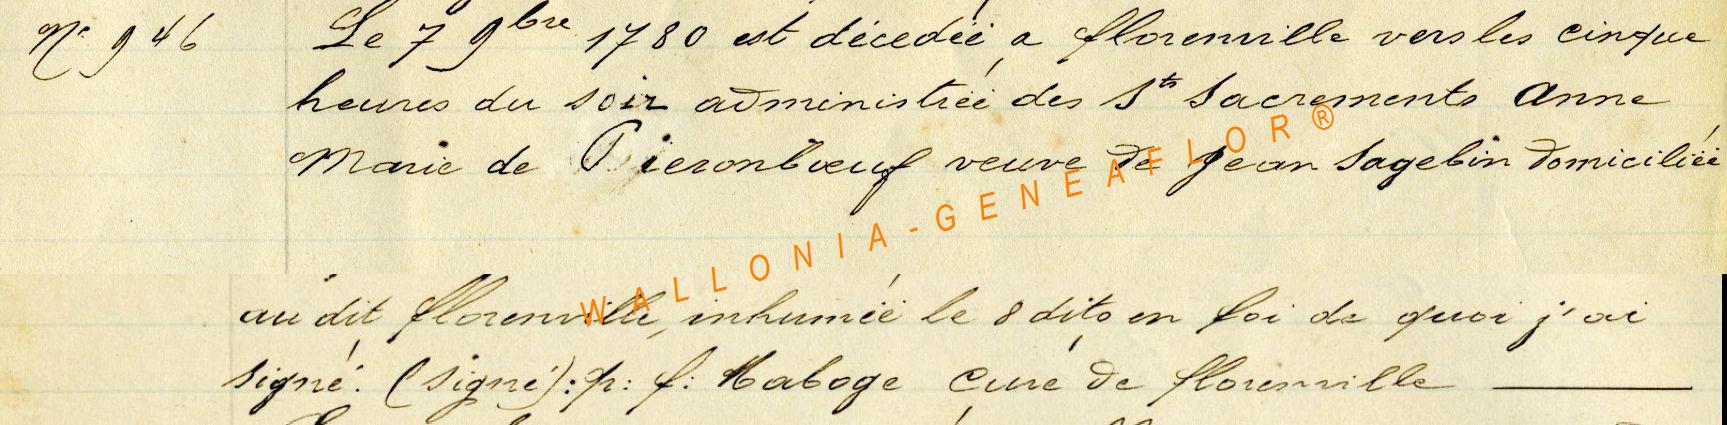 N° 946 Le 7 9bre 1780 est décedéé a florenville vers les cinque
heures du soir administréé des Sts Sacrements Anne
Marie de Pieronbœuf veuve de Jean Sagebin domiciliéé
au dit florenville, inhuméé le 8 dito en foi de quoi j'ai
signé. (signé): p: f: Haboge Curé de florenville
WALLONIA-GENEAFLOR®